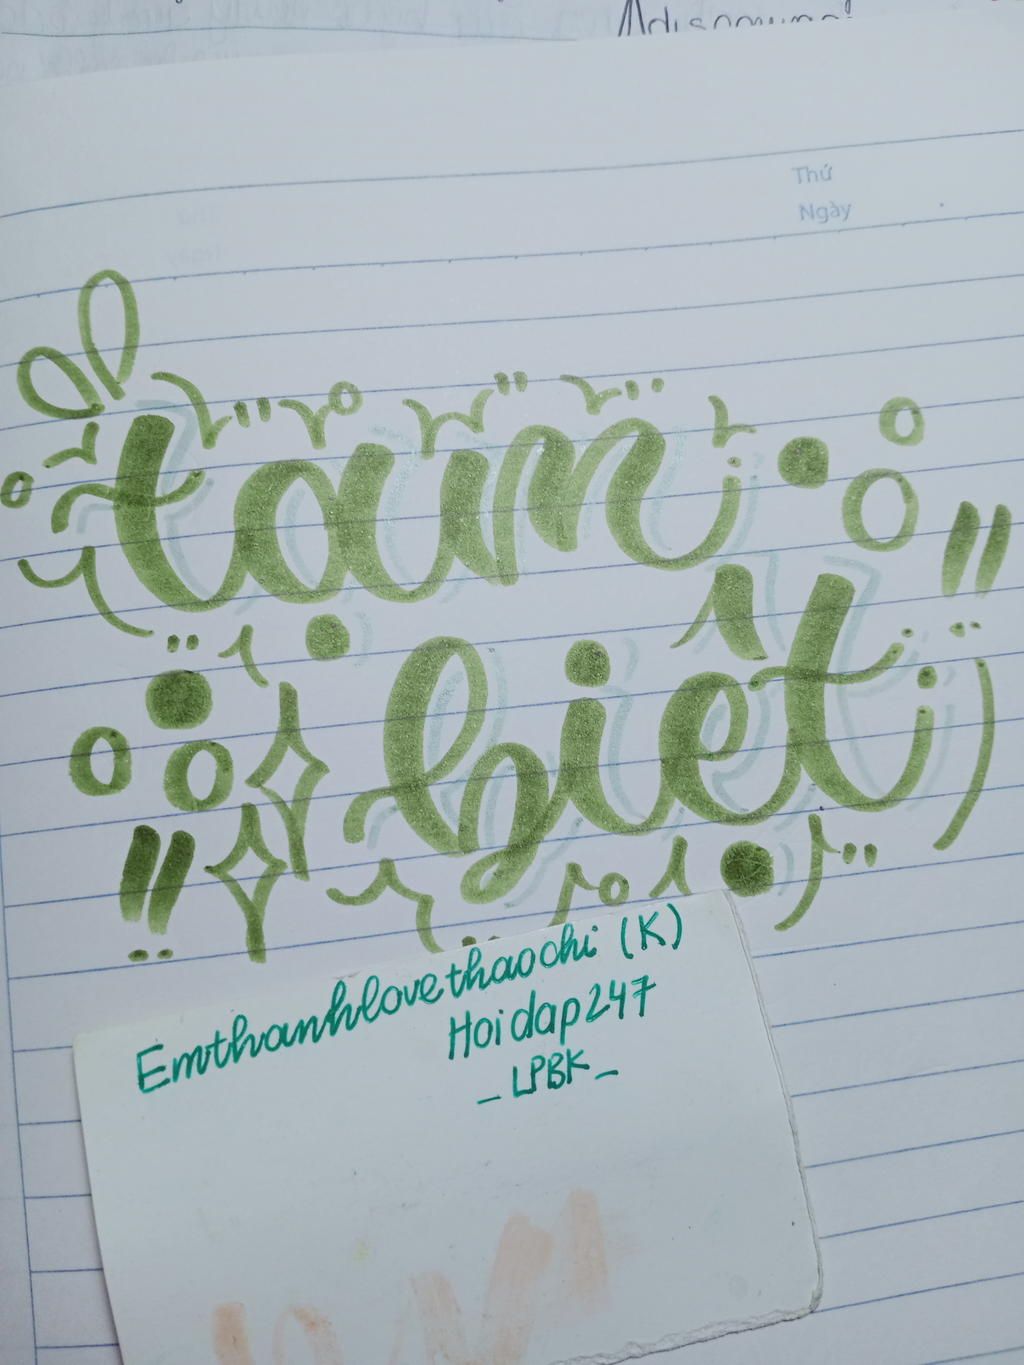 Thứ
Ngày
tạm
biệt
Emthanhlovethaochi (K)
Hoidap247
_LPBK_